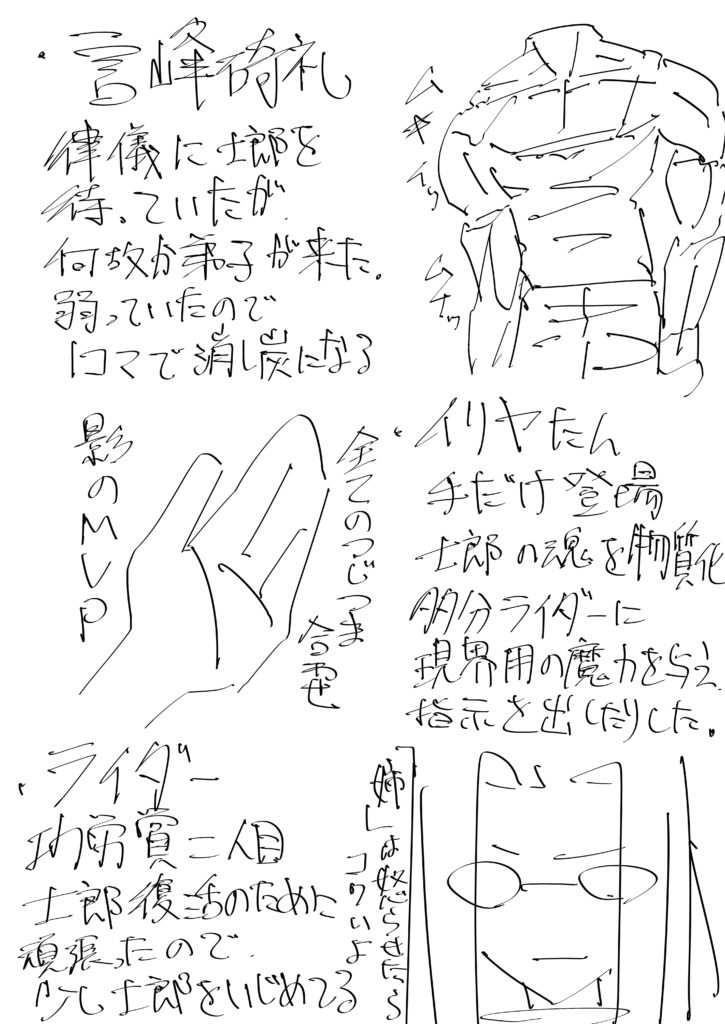 ・言峰綺礼
律儀に士郎を
待っていたが、
何故か弟子が来た。
弱っていたので
1コマで消し炭になる
ムキッ
ムチッ
・イリヤたん
手だけ登場
士郎の魂を物質化
多分ライダーに
現界用の魔力を与え
指示を出しだりした。
全てのつじつま
合わせ
影のMVP
・ライダー
功労賞二人目
士郎復活のために
頑張ったので、
少し士郎をいじめてる
「姉」は怒らせたら
コワいよ